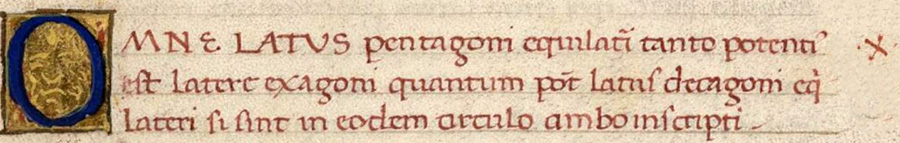 OMNE LATUS pentagoni equilatı̃ tanto potentiꝰ
est latere exagoni quantum pot̃ latus decagoni eq̃
lateri si sint in eodem circulo ambo inscripti .